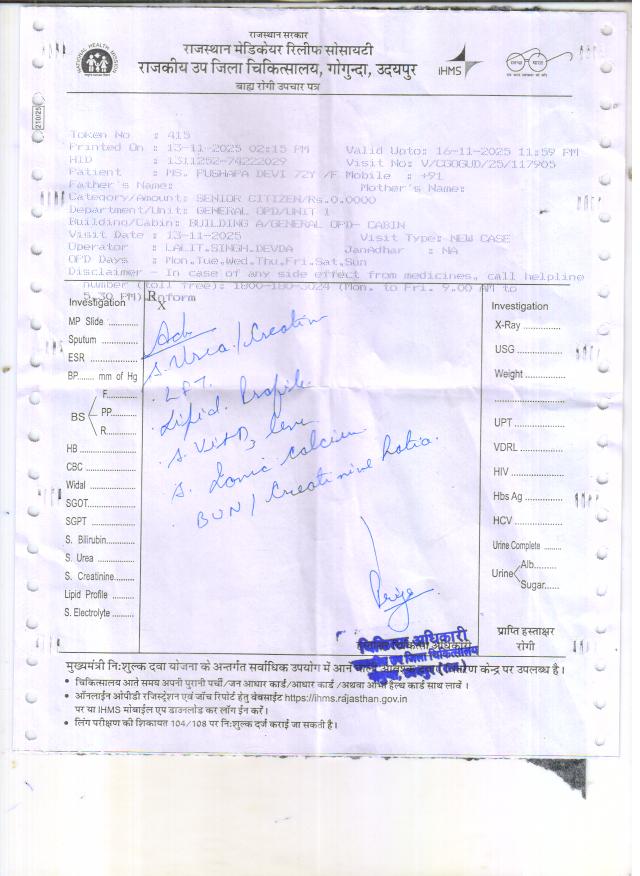 राजस्थान सरकार
राजस्थान मेडिकेयर रिलीफ सोसायटी
राजकीय उप जिला चिकित्सालय, गोगुन्दा, उदयपुर
बाह्य रोगी उपचार पत्र
NATIONAL HEALTH MISSION
iHMS
स्वच्छ भारत
एक कदम स्वच्छता की ओर
210/25
Token No : 415
Printed On : 13-11-2025 02:15 PM Valid Upto: 16-11-2025 11:59 PM
HID : 1311252-74222029 Visit No: V/CGOGUD/25/117905
Patient : MS. PUSHAPA DEVI 72Y /F Mobile : +91
Father's Name: Mother's Name:
Category/Amount: SENIOR CITIZEN/Rs.0.0000
Department/Unit: GENERAL OPD/UNIT 1
Building/Cabin: BUILDING A/GENERAL OPD- CABIN
Visit Date : 13-11-2025 Visit Type: NEW CASE
Operator : LALIT.SINGH.DEVDA JanAdhar : NA
OPD Days : Mon,Tue,Wed,Thu,Fri,Sat,Sun
Disclaimer - In case of any side effect from medicines, call helpline
number (toll free): 1800-180-3024 (Mon. to Fri. 9.00 AM to
5.30 PM) Rx nform
Investigation
MP Slide ............
Sputum ..............
ESR ................
BP....... mm of Hg
BS
F.........
PP.........
R.........
HB ................
CBC ................
Widal ..............
SGOT..............
SGPT ..............
S. Bilirubin.........
S. Urea ............
S. Creatinine.......
Lipid Profile .......
S. Electrolyte .......
Adv
S. Urea / Creatin
. LFT.
. Lipid. Profile.
. S. Vit D3 leve
. S. Ionic calcium
. BUN / Creatinine Ratio.
Investigation
X-Ray .............
USG ..............
Weight ............
........................
UPT ..............
VDRL .............
HIV ...............
Hbs Ag ............
HCV ..............
Urine Complete ........
Urine
Alb........
Sugar......
प्राप्ति हस्ताक्षर
रोगी
चिकित्सा अधिकारी
राजकीय उप जिला चिकित्सालय
गोगुन्दा, उदयपुर (राज.)
मुख्यमंत्री नि:शुल्क दवा योजना के अन्तर्गत सर्वाधिक उपयोग में आने वाली केन्द्र पर उपलब्ध है।
• चिकित्सालय आते समय अपनी पुरानी पर्ची/जन आधार कार्ड/आधार कार्ड /अथवा आभा हैल्थ कार्ड साथ लावें।
• ऑनलाईन ओपीडी रजिस्ट्रेशन एवं जाँच रिपोर्ट हेतु वेबसाईट https://ihms.rajasthan.gov.in
पर या IHMS मोबाईल एप डाउनलोड कर लॉग ईन करें।
• लिंग परीक्षण की शिकायत 104/108 पर नि:शुल्क दर्ज कराई जा सकती है।